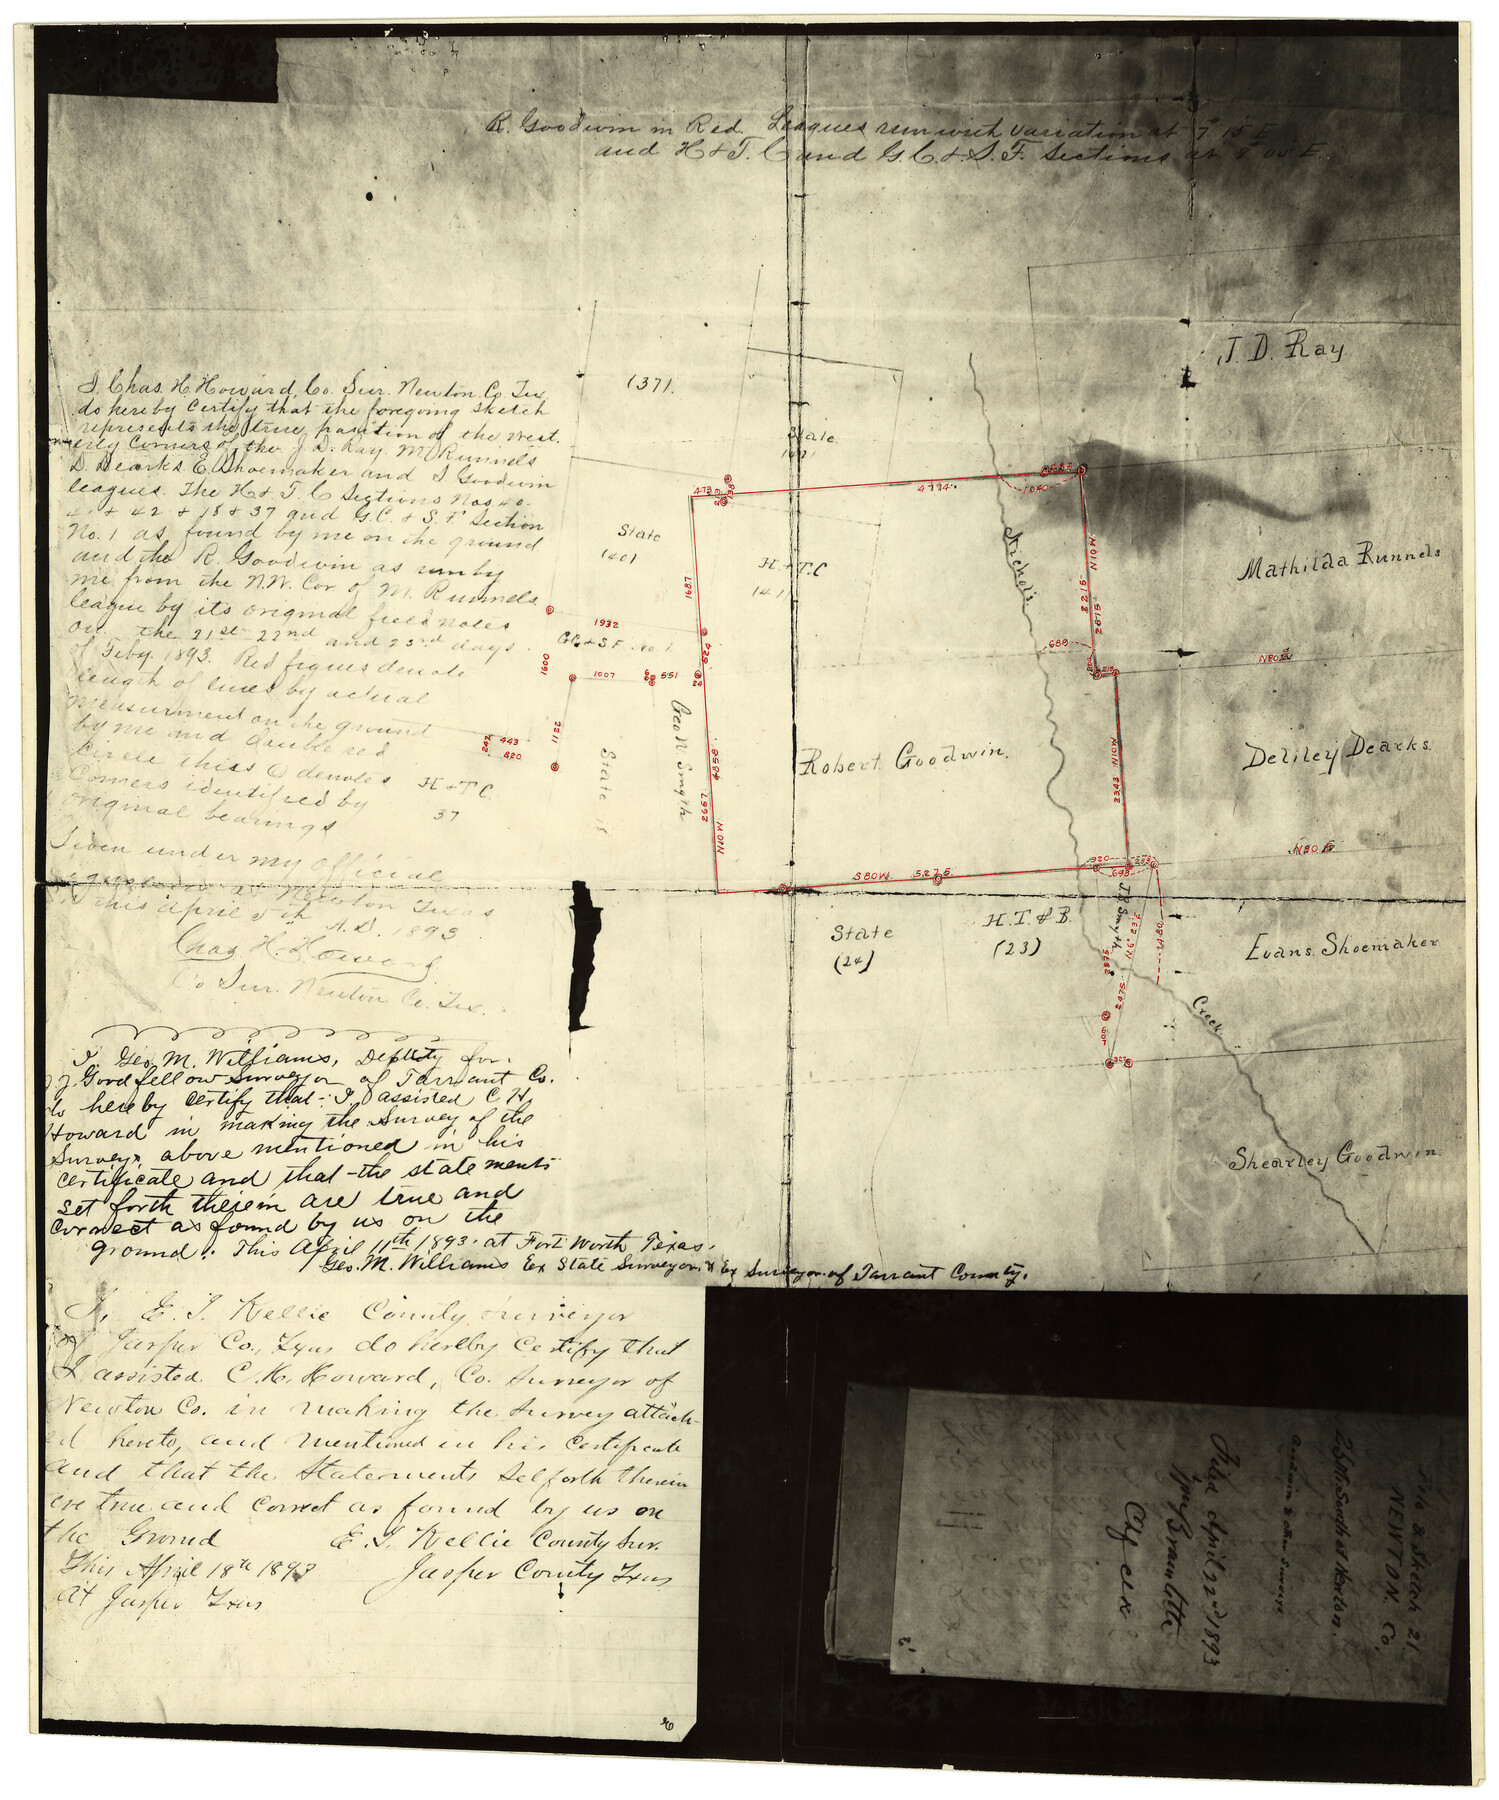 R. Goodwin in Red. Leagues run with variation at 7° 15 E
and H & T. C and G. C. & S. F. Sections at 8° 05 E
J. D. Ray
(37).
State
State
(40)
H. & T. C
(41)
Nichols
Mathilda Runnels
G. C. & S F. No 1.
Geo N Smyth
State 18
H & T C.
37
Robert Goodwin.
Deliley Dearks.
State
(24)
H. T. & B.
(23)
Evans Shoemaker
Creek
Shearley Goodwin.
473
138
4774
1040
N10W
2215
2615
1687
1932
524
1600
1007
551
24
1122
443
242
820
4858
2657
N10W
680
N80
2343 N10W
S80W. 5275
920
698
N80 E
2480
2475
I Chas. H. Howard, Co. Sur. Newton Co Tex,
do hereby Certify that the foregoing sketch
represents the true position of the West.
erly Corners of the J D. Ray. M. Runnels
D. Dearks. E. Shoemaker and S Goodwin
leagues. The H & T. C Sections Nos 40.
41 & 42 & 18 & 37 and G. C. & S. F. Section
No. 1 as found by me on the ground
and the R. Goodwin as run by
me from the N. W. Cor. of M. Runnels
league by its original field notes
on the 21st 22nd and 23rd days
of Feby. 1893. Red figues denote
length of lines by actual
measurment on the ground
by me and double red
Circle thiss ◎ denotes
Corners identified by
original bearings
Given under my official
Newton Texas
This April 5th A. D. 1893
Chas H. Howard
Co Sur. Newton Co. Tex.
I, Geo. M. Williams, Deputy for
J. J. Goodfellow Surveyor of Tarrant Co.
do hereby certify that I assisted C H.
Howard in making the Survey of the
Surveys above mentioned in his
certificate and that the statements
set forth therein are true and
correct as found by us on the
ground. This April 11th 1893. at Fort Worth Texas.
Geo. M. Williams Ex State Surveyor & Ex Surveyor of Tarrant County.
I, E. I. Kellie County Surveyor
of Jasper Co., Texas do hereby Certify that
I assisted C. H. Howard, Co. Surveyor of
Newton Co. in making the Survey attach-
ed hereto, and mentioned in his Certificate
and that the Statements Setforth therein
are true and Correct as found by us on
the Ground E. I. Kellie County Sur.
This April 18th 1893 Jasper County Texas
At Jasper Texas
File 8 Sketch 21
NEWTON. Co.
Goodwin & other Surveys
Filed April 22nd 1893